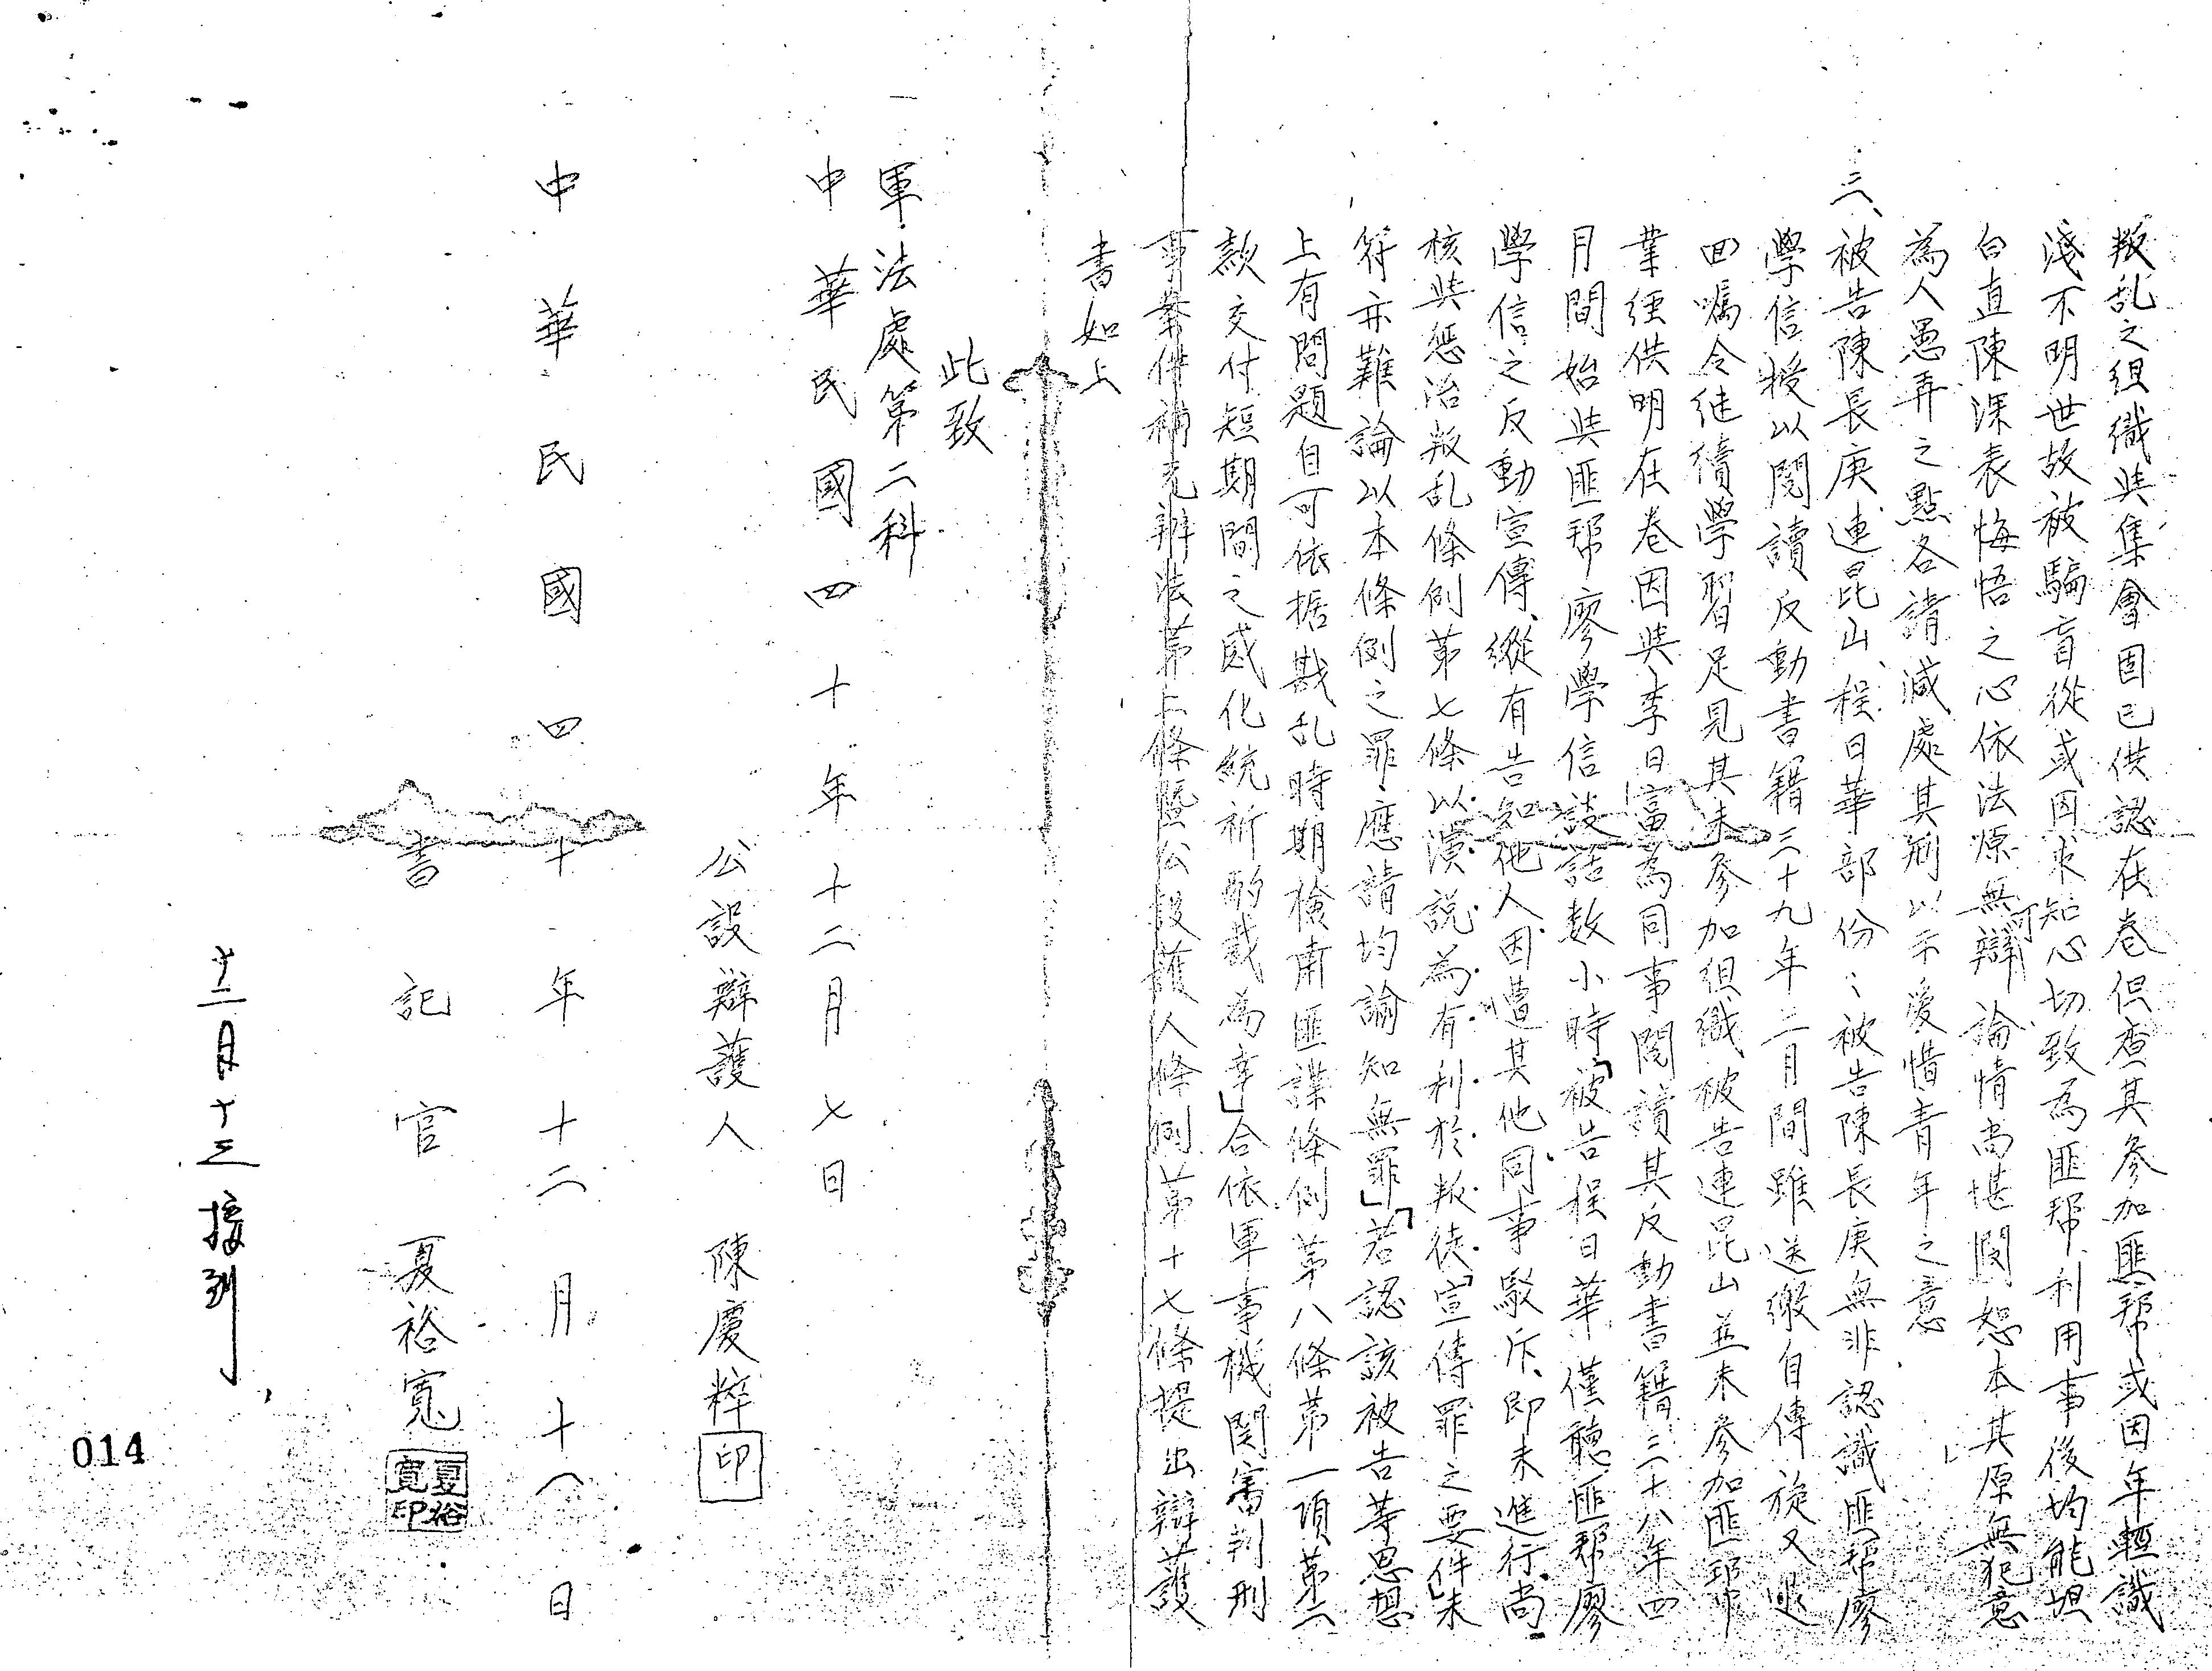 叛乱之组織與集會固已供認在卷但查其參加匪帮或因年輕識
淺不明世故被騙盲從或因求知心切致為匪帮利用事後均能坦
白直陳深表悔悟之心依法原無可辯論情尚堪閔恕本其原無犯意
為人愚弄之點各請減處其刑以示愛惜青年之意」
三、被告陳長庚、連昆山、程日華部份：被告陳長庚無非認識匪帮廖
學信授以閱讀反動書籍三十九年二月間雖送繳自傳旋又退
回囑令继續學習足見其未參加组織被告連昆山並未參加匪帮
業经供明在卷因與李日富為同事閱讀其反動書籍三十八年四
月間始與匪帮廖學信談話数小時「被告程日華僅聽匪帮廖
學信之反動宣傳、縱有告知他人因遭其他同事駁斥、即未進行、尚
核與惩治叛乱條例第七條以演説為有利於叛徒宣傳罪之要件」未
符亦難論以本條例之罪應請均諭知無罪」「若認該被告等思想
上有問題自可依据戡乱時期檢肅匪諜條例第八條第一項第二
款交付短期間之感化統祈酌裁為幸」合依軍事機関審判刑
事案件補充辦法第上條暨公設護人條例第十七條提出辯護
書如上
此致
軍法處第二科
中華民國四十年十二月七日
公設辯護人 陳慶粹 印
中華民國四十年十二月十八日
書記官 夏裕寬 夏裕寬印
十二月十三接到
014